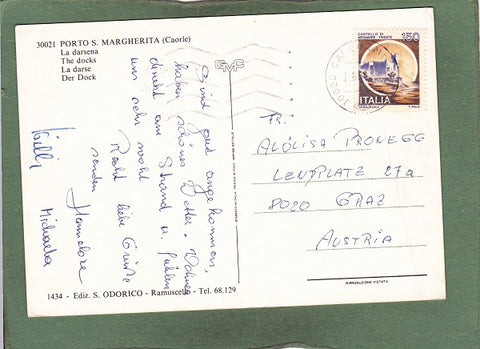 30021 PORTO S. MARGHERITA (Caorle)
La darsena
The docks
La darse
Der Dock
150
CASTELLO DI
MIRAMARE - TRIESTE
ITALIA
30020
Sind gut angekommen,
haben schönes Wetter. Wohnen
direkt am Strand u. fühlen
uns sehr wohl
Recht liebe Grüße
senden Hannelore
Willi Michaela
Fr.
ALOISA PRONEGG
LENDPLATZ 27a
8020 GRAZ
AUSTRIA
1434 - Ediz. S. ODORICO - Ramuscello - Tel. 68.129
RIPRODUZIONE VIETATA